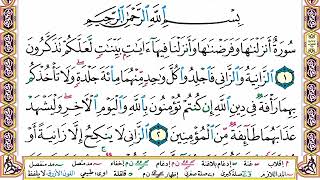 بِسْمِ اللَّهِ الرَّحْمَٰنِ الرَّحِيمِ
سُورَةٌ أَنزَلْنَٰهَا وَفَرَضْنَٰهَا وَأَنزَلْنَا فِيهَآ ءَايَٰتٍۭ بَيِّنَٰتٍ لَّعَلَّكُمْ تَذَكَّرُونَ
١ ٱلزَّانِيَةُ وَٱلزَّانِى فَٱجْلِدُوا۟ كُلَّ وَٰحِدٍ مِّنْهُمَا مِا۟ئَةَ جَلْدَةٍ وَلَا تَأْخُذْكُم
بِهِمَا رَأْفَةٌ فِى دِينِ ٱللَّهِ إِن كُنتُمْ تُؤْمِنُونَ بِٱللَّهِ وَٱلْيَوْمِ ٱلْءَاخِرِ وَلْيَشْهَدْ
عَذَابَهُمَا طَآئِفَةٌ مِّنَ ٱلْمُؤْمِنِينَ ٢ ٱلزَّانِى لَا يَنكِحُ إِلَّا زَانِيَةً أَوْ